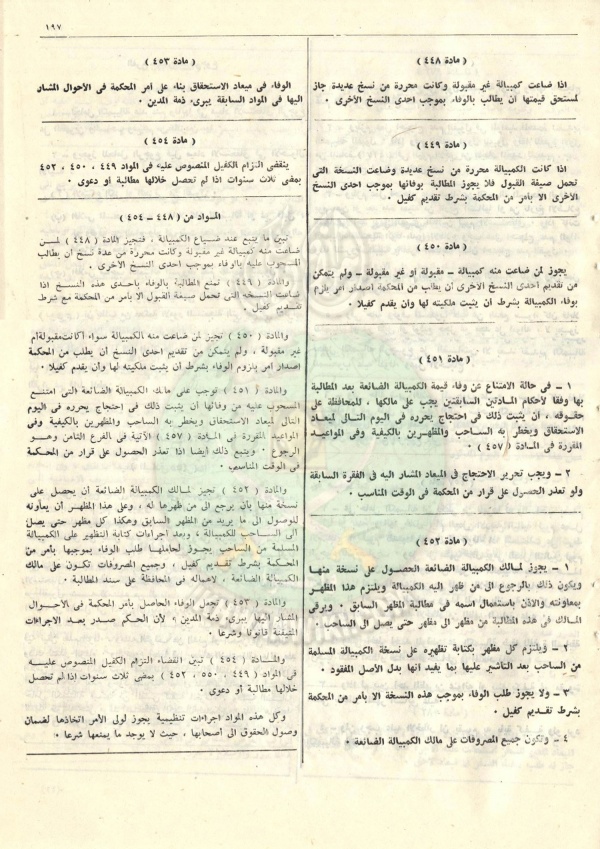 ١٩٧
( مادة ٤٤٨ )
اذا ضاعت كمبيالة غير مقبولة وكانت محررة من نسخ عديدة جاز
لمستحق قيمتها أن يطالب بالوفاء بموجب احدى النسخ الأخرى .
( مادة ٤٤٩ )
اذا كانت الكمبيالة محررة من نسخ عديدة وضاعت النسخة التى
تحمل صيغة القبول فلا يجوز المطالبة بوفائها بموجب احدى النسخ
الأخرى الا بأمر من المحكمة بشرط تقديم كفيل .
( مادة ٤٥٠ )
يجوز لمن ضاعت منه كمبيالة ــ مقبولة أو غير مقبولة ــ ولم يتمكن
من تقديم احدى النسخ الأخرى أن يطلب من المحكمة اصدار أمر يلزم
بوفاء الكمبيالة بشرط أن يثبت ملكيته لها وأن يقدم كفيلا .
( مادة ٤٥١ )
١ ــ فى حالة الامتناع عن وفاء قيمة الكمبيالة الضائعة بعد المطالبة
بها وفقا لأحكام المادتين السابقتين يجب على مالكها ، للمحافظة على
حقوقه ، أن يثبت ذلك فى احتجاج يحرره فى اليوم التالى لميعاد
الاستحقاق ويخطر به الساحب والمظهرين بالكيفية وفى المواعيد
المقررة فى المادة ( ٤٥٧ ) .
٢ ــ ويجب تحرير الاحتجاج فى الميعاد المشار اليه فى الفقرة السابقة
ولو تعذر الحصول على قرار من المحكمة فى الوقت المناسب .
( مادة ٤٥٢ )
١ ــ يجوز لمالك الكمبيالة الضائعة الحصول على نسخة منها
ويكون ذلك بالرجوع الى من ظهر اليه الكمبيالة ويلتزم هذا المظهر
بمعاونته والاذن باستعمال اسمه فى مطالبة المظهر السابق . ويرقى
المالك فى هذه المطالبة من مظهر الى مظهر حتى يصل الى الساحب .
٢ ــ ويلتزم كل مظهر بكتابة تظهيره على نسخة الكمبيالة المسلمة
من الساحب بعد التأشير عليها بما يفيد أنها بدل الأصل المفقود .
٣ ــ ولا يجوز طلب الوفاء بموجب هذه النسخة الا بأمر من المحكمة
بشرط تقديم كفيل .
٤ ــ وتكون جميع المصروفات على مالك الكمبيالة الضائعة .
( مادة ٤٥٣ )
الوفاء فى ميعاد الاستحقاق بناء على أمر المحكمة فى الأحوال المشار
اليها فى المواد السابقة يبرىء ذمة المدين .
( مادة ٤٥٤ )
ينقضى التزام الكفيل المنصوص عليه فى المواد ٤٤٩ ، ٤٥٠ ، ٤٥٢
بمضى ثلاث سنوات اذا لم تحصل خلالها مطالبة أو دعوى .
المواد من ( ٤٤٨ ــ ٤٥٤ )
تبين ما يتبع عند ضياع الكمبيالة ، فتجيز المادة ( ٤٤٨ ) لمن
ضاعت منه كمبيالة غير مقبولة وكانت محررة من عدة نسخ أن يطالب
المسحوب عليه بالوفاء بموجب احدى النسخ الأخرى .
والمادة ( ٤٤٩ ) تمنع المطالبة بالوفاء باحدى هذه النسخ اذا
ضاعت النسخه التى تحمل صيغة القبول الا بأمر من المحكمة مع شرط
تقديم كفيل .
والمادة ( ٤٥٠ ) تجيز لمن ضاعت منه الكمبيالة سواء أكانت مقبولة أم
غير مقبولة ، ولم يتمكن من تقديم احدى النسخ أن يطلب من المحكمة
اصدار أمر بلزوم الوفاء بشرط أن يثبت ملكيته لها وأن يقدم كفيلا .
والمادة ( ٤٥١ ) توجب على مالك الكمبيالة الضائعة التى امتنع
المسحوب عليه من وفائها أن يثبت ذلك فى احتجاج يحرره فى اليوم
التالى لميعاد الاستحقاق ويخطر به الساحب والمظهرين بالكيفية وفى
المواعيد المقررة فى المادة ( ٤٥٧ ) الآتية فى الفرع الثامن وهو
الرجوع . ويتبع ذلك أيضا اذا تعذر الحصول على قرار من المحكمة
فى الوقت المناسب .
والمادة ( ٤٥٢ ) تجيز لمالك الكمبيالة الضائعة أن يحصل على
نسخة منها بأن يرجع الى من ظهرها له ، وعلى هذا المظهر أن يعاونه
للوصول الى ما يريد من المظهر السابق وهكذا كل مظهر حتى يصل
الى الساحب للكمبيالة ، وبعد اجراءات كتابة التظهير على الكمبيالة
المسلمة من الساحب يجوز لحاملها طلب الوفاء بموجبها بأمر من
المحكمة بشرط تقديم كفيل ، وجميع المصروفات تكون على مالك
الكمبيالة الضائعة ، لاهماله فى المحافظة على سند المطالبة .
والمادة ( ٤٥٣ ) تجعل الوفاء الحاصل بأمر المحكمة فى الأحوال
المشار اليها يبرىء ذمة المدين » لأن الحكم صدر بعد الاجراءات
المتيقنة قانونا وشرعا .
والمادة ( ٤٥٤ ) تبين انقضاء التزام الكفيل المنصوص عليه
فى المواد ( ٤٤٩ ، ٥٥٠ ، ٤٥٢ ) بمضى ثلاث سنوات اذا لم تحصل
خلالها مطالبة أو دعوى .
وكل هذه المواد اجراءات تنظيمية يجوز لولى الأمر اتخاذها لضمان
وصول الحقوق الى أصحابها ، حيث لا يوجد ما يمنعها شرعا .